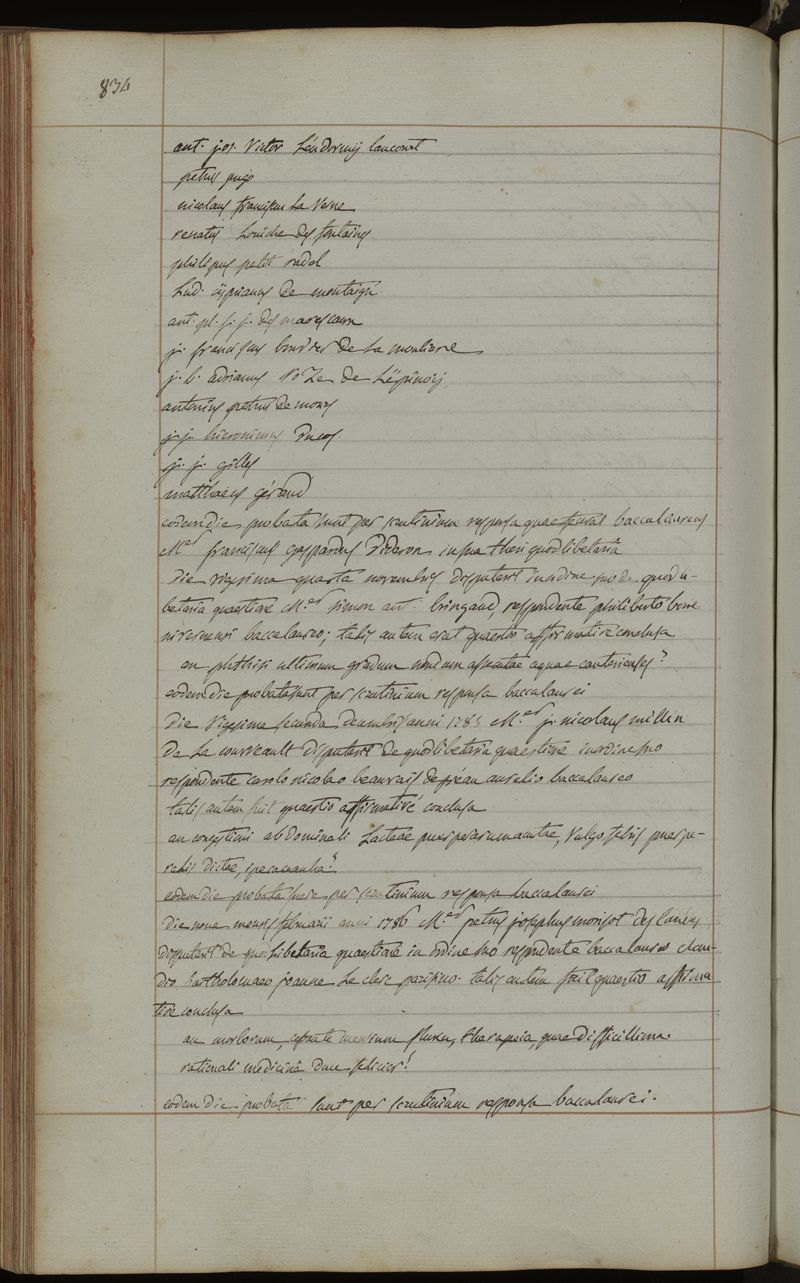 834
ant. jos. Victor Léndormy laucourt
petrus puzo
nicolaus franciscus La Verne
renatus Louiche des fontaines
philippus petit radel
Lud. cyprianus De montaigu
ant. pl. j. j. des marescaux
j. franciscus bourdier De La mouliere
j. b. adrianus De Lépinoy
antonius petrus Demours
j. j. hieronimus Ducos
j. j. gilles
matthaeus géraud
eodem die probata sunt per scrutinium responsa quae fecerat baccalaureus
M.er franciscus gaspardus Pideron in sua thesi quodlibetaria
Die vigesima quarta novembris disputavit in ordine suo de quodli-
betaria quaestione M.er simon ant. bringaud, respondente philiberto
baccalaureo; talis autem erat quaestio affirmative conclusa
an phthisi ultimum gradum nondum assecutae aquae cauterienses?
eodem die probata sunt per scrutinium responsa baccalaurei
Die Vigesima secunda decembris anni 1785 M.er j. nicolaus millin
De La courveault Disputavit de quodlibetaria quaestione in ordine suo
respondente carolo nicolao beauvais de préau aurelio baccalaureo
talis autem fuit quaestio affirmativé conclusa
an congestioni abdominali Lacteae puerperarum acutae, Vulgo febris puerpe-
ralis dictae, ipecacuanha?
eodem die probata fuere per scrutinium responsa baccalaurei
Die nona mensis februarii anni 1786 M.er petrus josephus morisot Deslandes
disputavit de quodlibetaria quaestione in ordine suo respondente baccalaureo clau-
dio bartholomaeo joanne Le clerc parisino. talis autem fuit quaestio affirma
tive conclusa
an morborum, cessante mensium fluxu, therapeia, quae difficillima
rationali medicinâ Duce felicior?
eodem die probata sunt per scrutinium responsa baccalaurei.